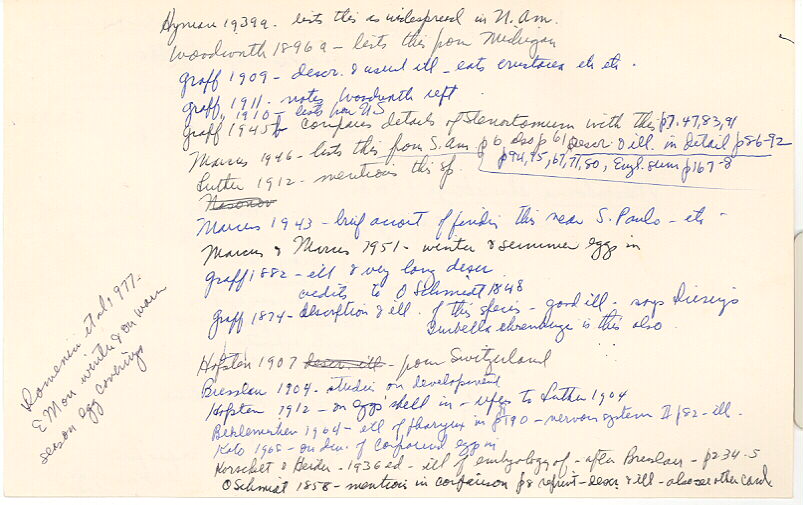 Hyman 1939a. lists this as widespread in N. Am.
Woodworth 1896a - lists this from Michigan
Graff 1909 - descr. & useful ill - eats crustacea etc etc.
Graff 1911 - notes Woodworth rept
Graff 1910 - lists from US
1945b compares details of Stenostomum with this p7, 47, 83, 91
Marcus 1946 - lists this from S. Am p6, desp 61, Descr. & ill. in detail p86-92
p94, 95, 67, 71, 80, Engl. sum p167-8
Luther 1912 - mentions this sp.
Nasonov
Marcus 1943 - brief account of finding this near S. Paulo - etc -
Marcus & Marcus 1951 - winter & summer eggs in
Graff 1882 - ill & very long descr
credits to O Schmidt 1848
Graff 1874 - description & ill. of this species - good ill - says Diesings
Turbella ehrenbergi is this also.
Hofsten 1907 descr. ill - from Switzerland
Bresslau 1904 - studies on development
Hofsten 1912 - on eggs shell in - refers to Luther 1904
Beklemischev 1964 - ill of pharynx in p190 - nervous system II p82 - ill.
Kato 1968 - on dev. of compound egg in
Korschelt & Heider - 1936 ed - ill of embryology of - after Bresslau - p234-5
O Schmidt 1858 - mentions in comparison p8 reprint - descr & ill - also see other card
Domenici et al 1977.
EM on winter & on warm
season egg coverings